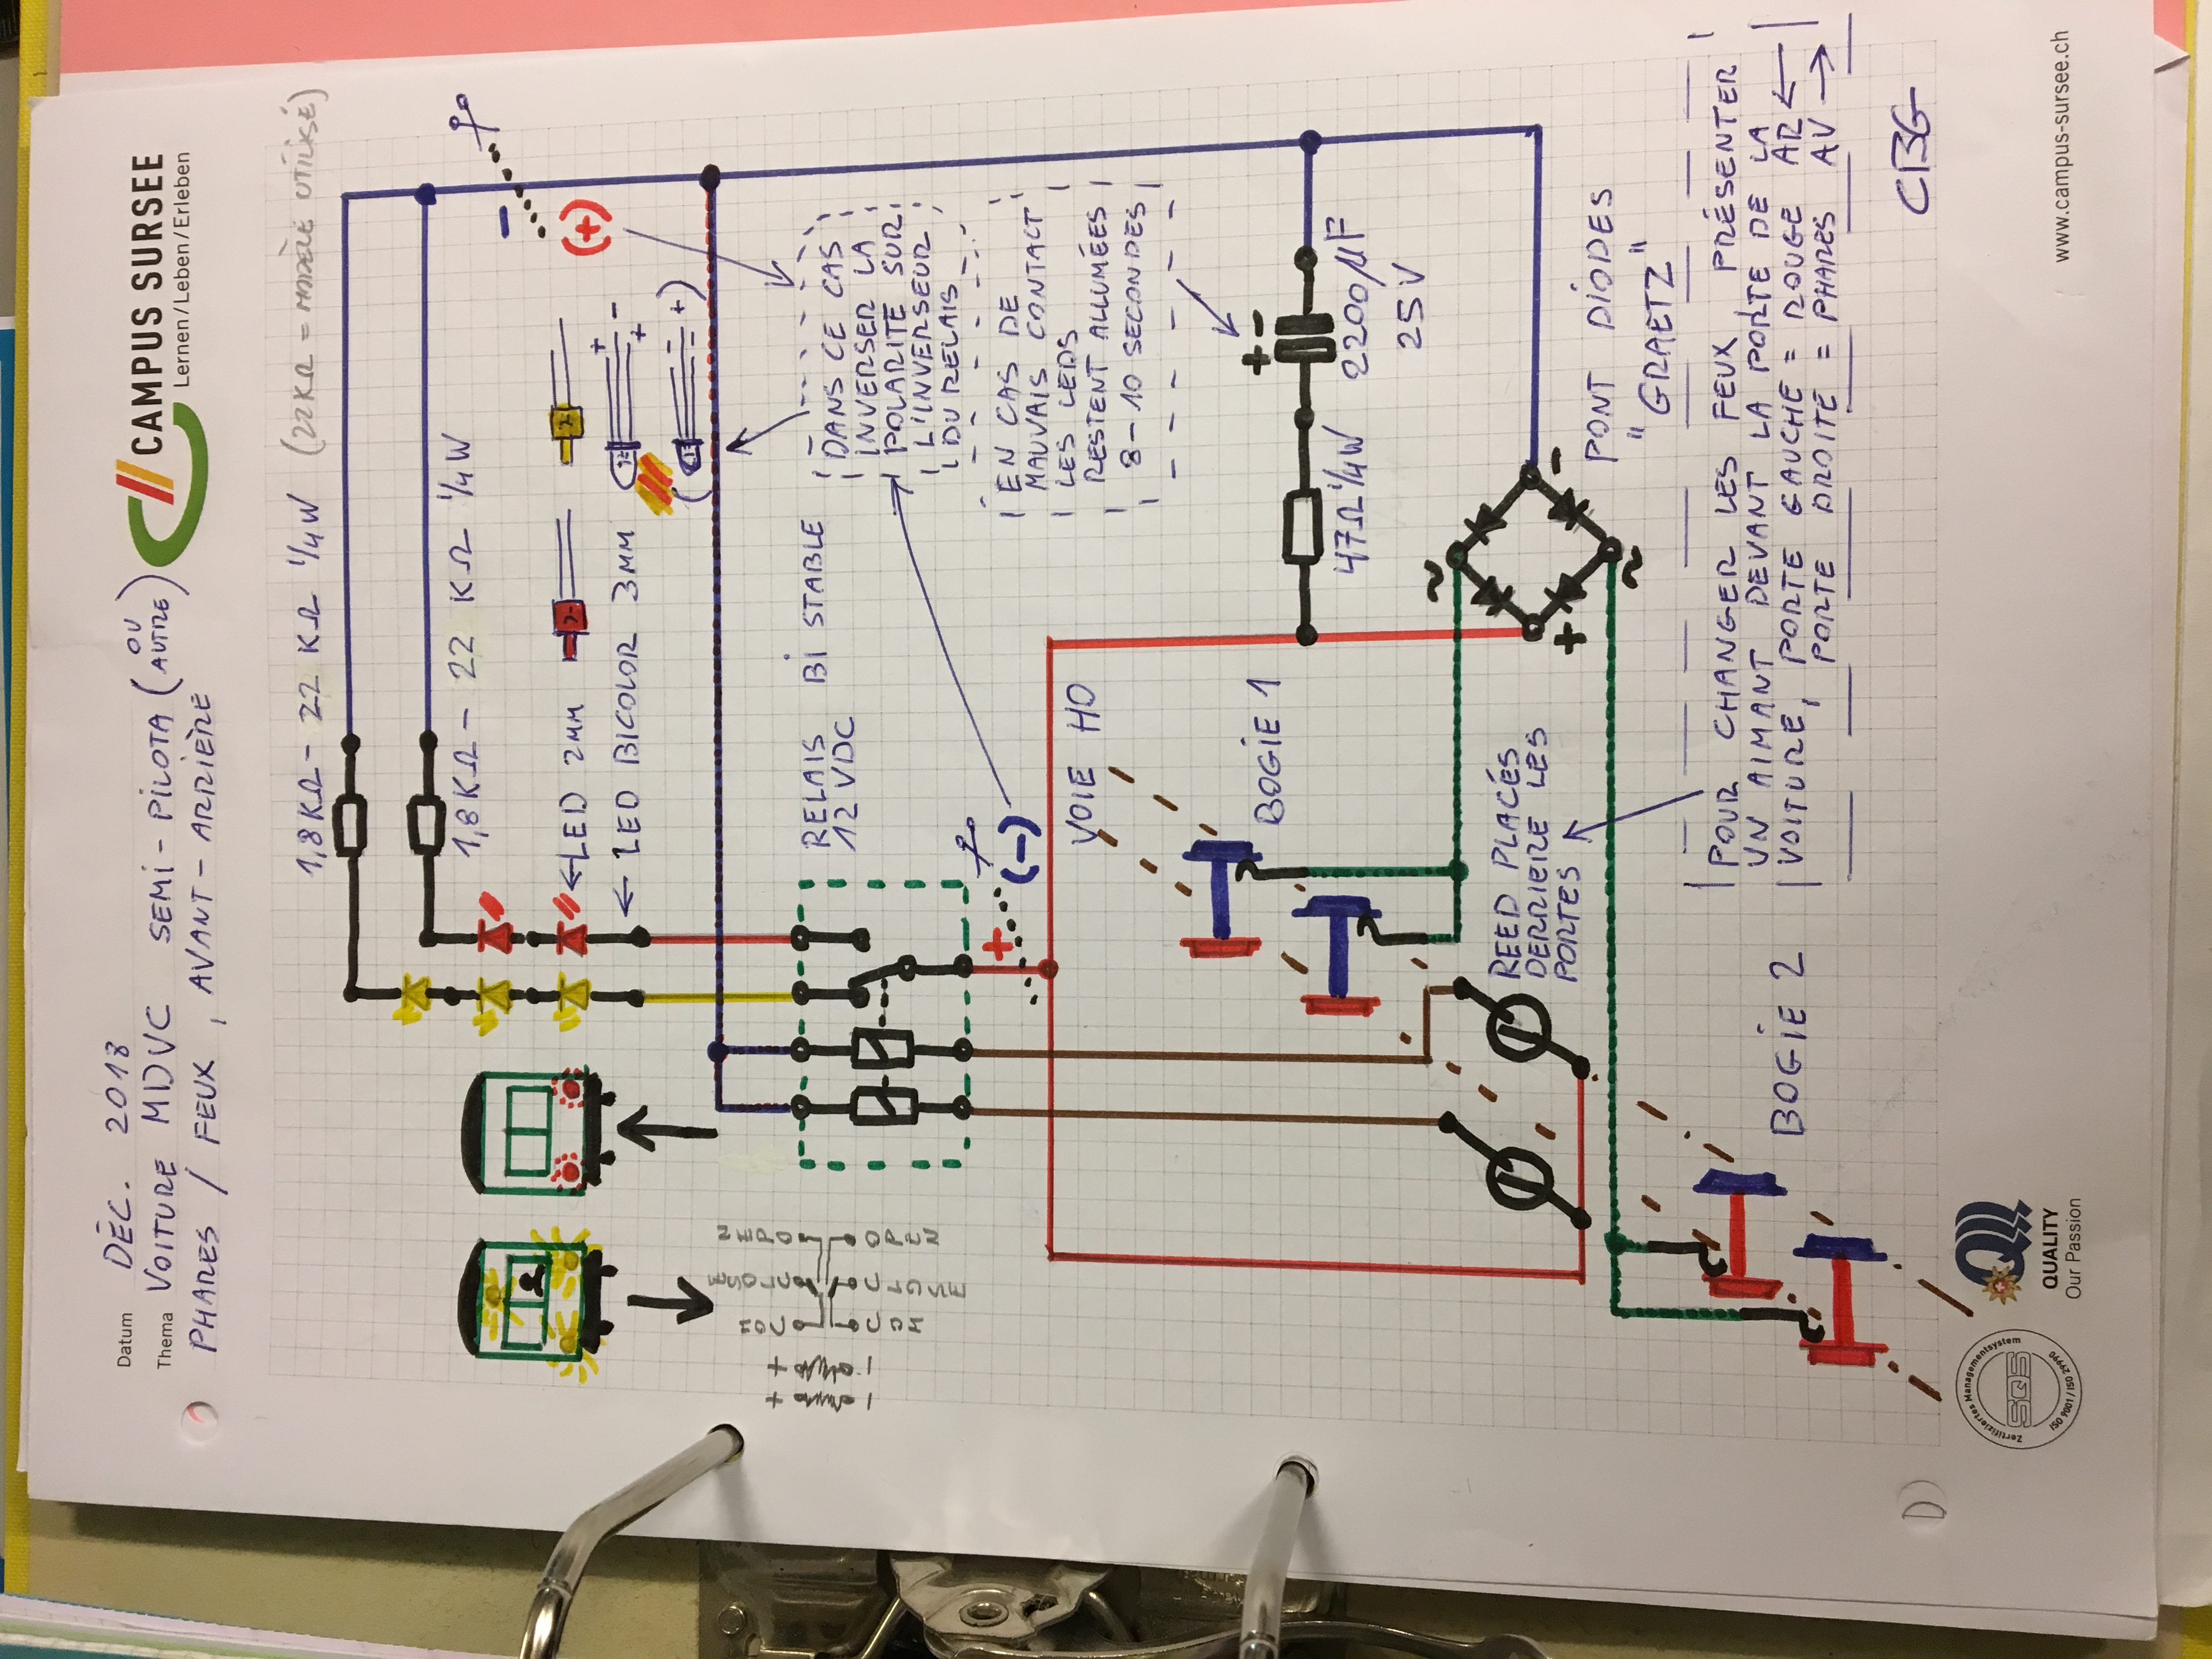 CAMPUS SURSEE
Lernen/Leben/Erleben
Datum DÉC. 2018
Thema VOITURE MDVC SEMI-PILOTA (OU AUTRE)
PHARES / FEUX, AVANT-ARRIÈRE
1,8KΩ - 22 KΩ 1/4W (22KΩ = MODÈLE UTILISÉ)
1,8KΩ - 22 KΩ 1/4W
←LED 2MM
← LED BICOLOR 3MM
+
-
+
-
+
-
(+)
RELAIS BISTABLE
12 VDC
DANS CE CAS
INVERSER LA
POLARITÉ SUR
L'INVERSEUR
DU RELAIS
EN CAS DE
MAUVAIS CONTACT
LES LEDS
RESTENT ALLUMÉES
8-10 SECONDES
OPEN
OPEN
+
(-)
VOIE HO
BOGIE 1
+ -
47Ω 1/4W
2200µF
25V
~
-
+
~
PONT DIODES
"GRAETZ"
REED PLACÉS
DERRIERE LES
PORTES
POUR CHANGER LES FEUX PRÉSENTER
UN AIMANT DEVANT LA PORTE DE LA
VOITURE, PORTE GAUCHE = ROUGE AR ←
PORTE DROITE = PHARES AV →
BOGIE 2
CBG
SQS
Zertifiziertes Managementsystem
ISO 9001/ISO 29990
QUALITY
Our Passion
www.campus-sursee.ch